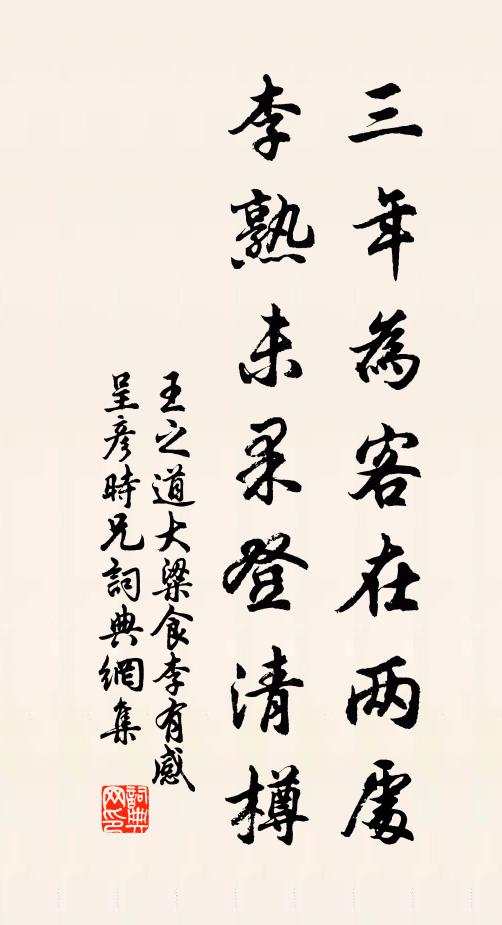 三年為客在两處
李熟未果登清樽
王之道大梁食李有感
呈彥時兄詞典網集
詞典
网印